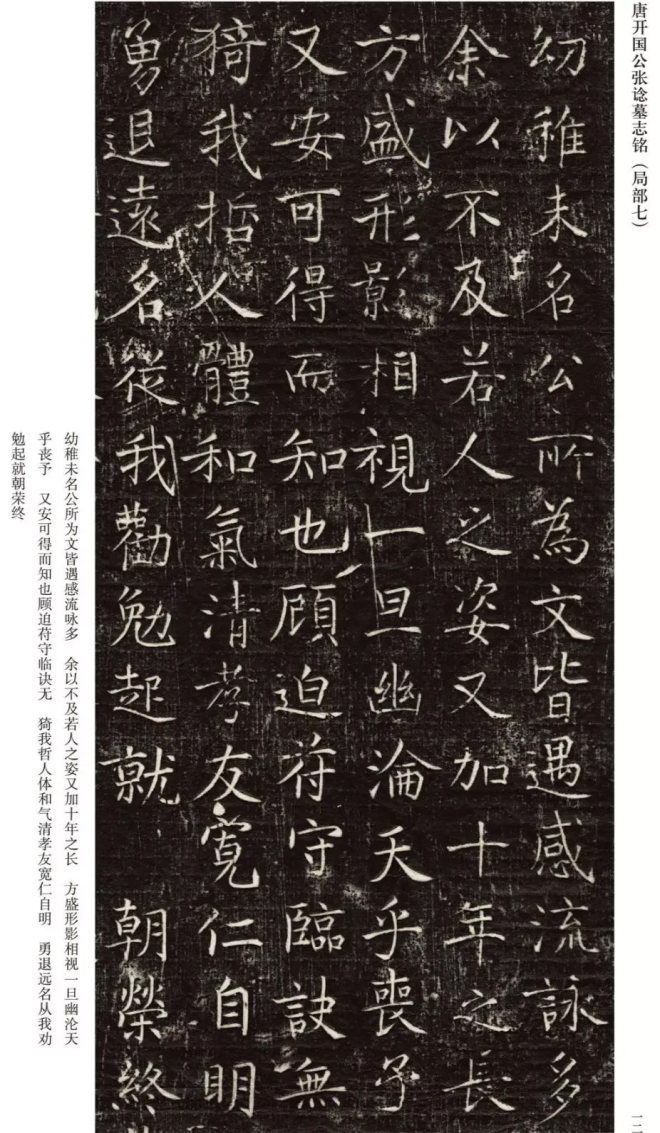 唐开国公张谂墓志铭（局部七）
幼稚未名公所為文皆遇感流詠多
余以不及若人之姿又加十年之長
方盛形影相視一旦幽淪天乎喪予
又安可得而知也顧迫苻守臨訣無
猗我哲人體和氣清孝友寬仁自明
勇退遠名從我勸勉起就朝榮終
幼稚未名公所为文皆遇感流咏多　余以不及若人之姿又加十年之长　方盛形影相视一旦幽沦天
乎丧予　又安可得而知也顾迫苻守临诀无　猗我哲人体和气清孝友宽仁自明　勇退远名从我劝
勉起就朝荣终
一二